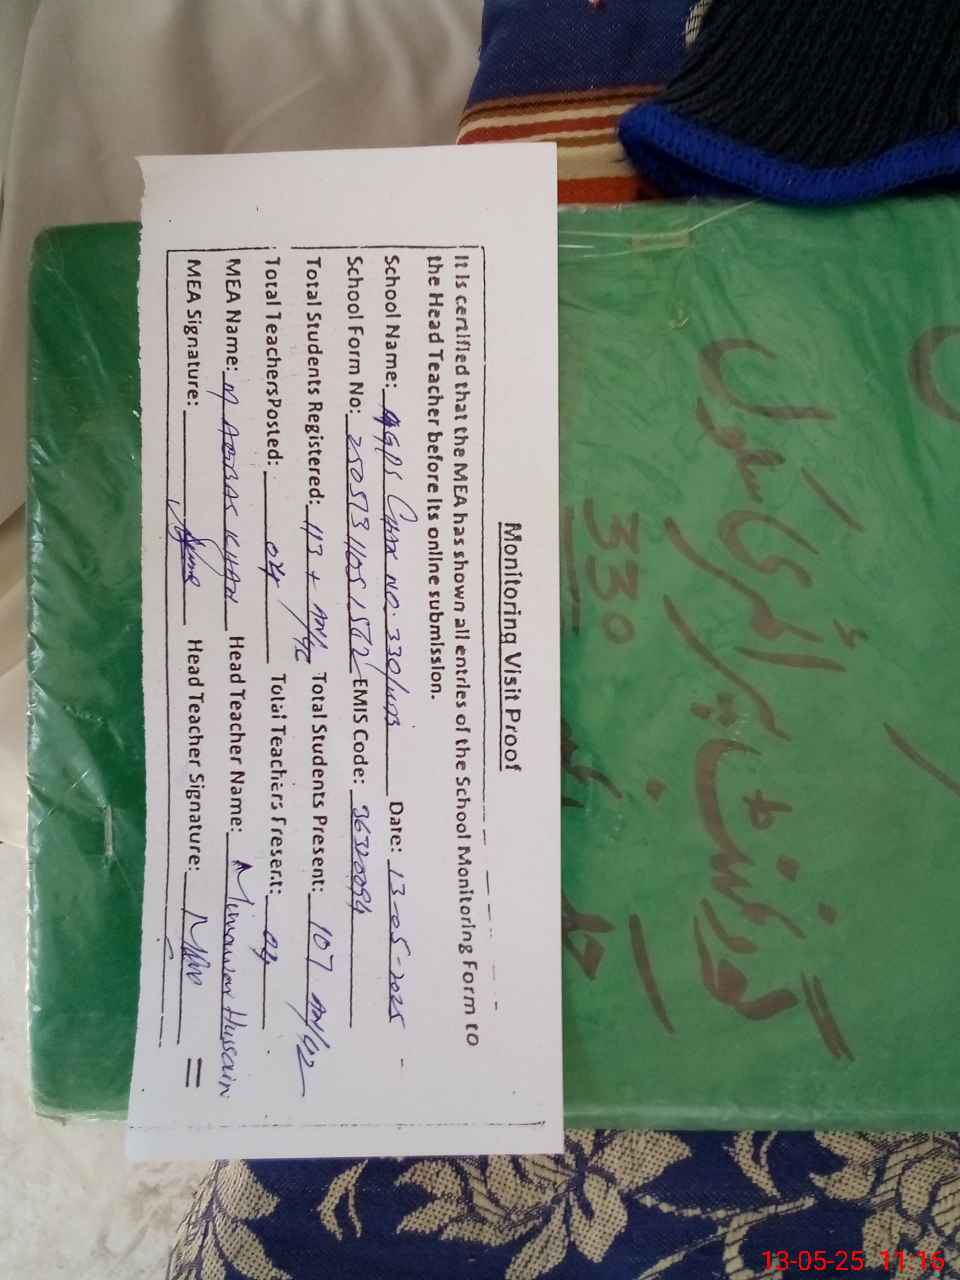 Monitoring Visit Proof
It is certified that the MEA has shown all entries of the School Monitoring Form to
the Head Teacher before its online submission.
School Name: GPS Chak NO. 330/WB Date: 13-05-2025
School Form No: 250513 1105 1572 EMIS Code: 36320094
Total Students Registered: 113 + Total Students Present: 107
Total TeachersPosted: 04 Total Teachers Present: 04
MEA Name: M ABBAS KHAN Head Teacher Name: Munawar Hussain
MEA Signature: Head Teacher Signature:
گورنمنٹ پرائمری سکول
330
13-05-25 11:16